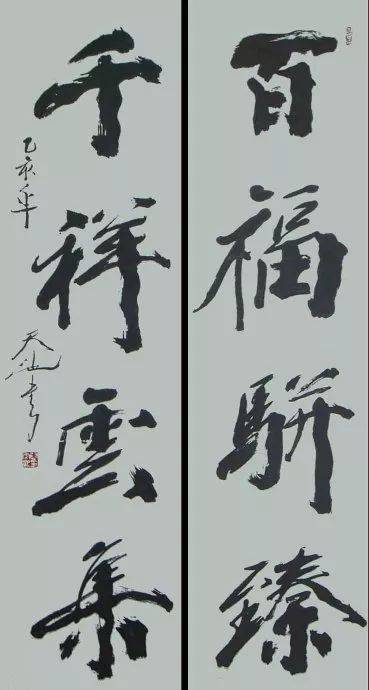 百福駢臻
千祥雲集
乙亥年